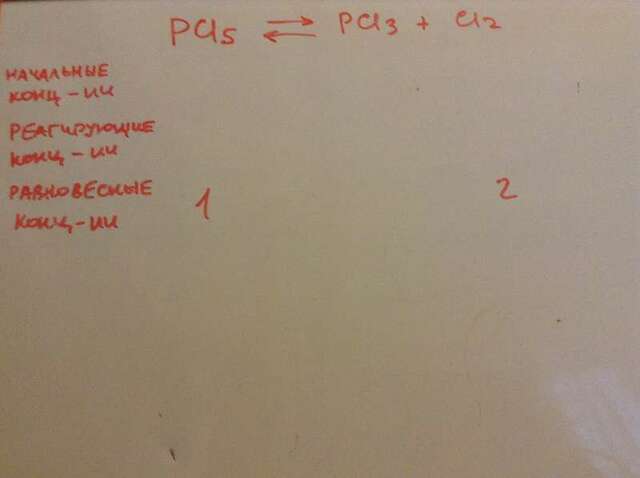 PCl5 ⇌ PCl3 + Cl2
НАЧАЛЬНЫЕ
КОНЦ-ИИ
РЕАГИРУЮЩИЕ
КОНЦ-ИИ
РАВНОВЕСНЫЕ 1 2
КОНЦ-ИИ